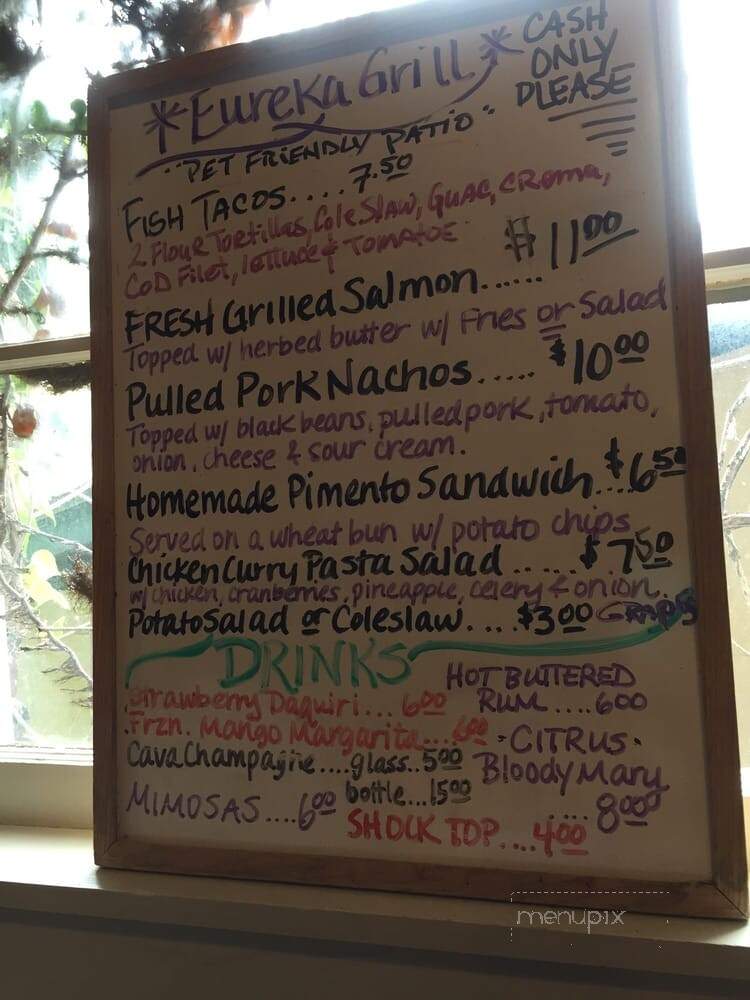 *Eureka Grill*
CASH
ONLY
PLEASE
"PET FRIENDLY PATIO"
FISH TACOS.... 7.50
2 Flour Tortillas, Cole Slaw, Guac, Croma,
COD Filet, lettuce & TOMATOE
FRESH Grilled Salmon...... $11.00
Topped w/ herbed butter w/ Fries or Salad
Pulled Pork Nachos..... $10.00
Topped w/ black beans, pulled pork, tomato,
onion, cheese & sour cream.
Homemade Pimento Sandwich.... $6.50
Served on a wheat bun w/ potato chips
Chicken Curry Pasta Salad ..... $7.50
w/ chicken, cranberries, pineapple, celery & onion.
GRAPES
Potato Salad or Coleslaw.... $3.00
DRINKS
Strawberry Daquiri... 6.00
Frzn. Mango Margarita... 6.00
Cava Champagne....glass..5.00
bottle...15.00
MIMOSAS....6.00
HOT BUTTERED
RUM ....6.00
·CITRUS·
Bloody Mary
.... 8.00
SHOCK TOP....4.00
menupix